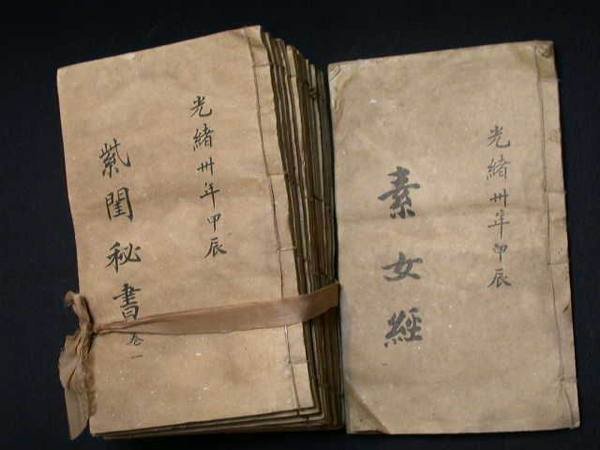 光緒卅年甲辰
素女經
光緒卅年甲辰
紫閨秘書卷一